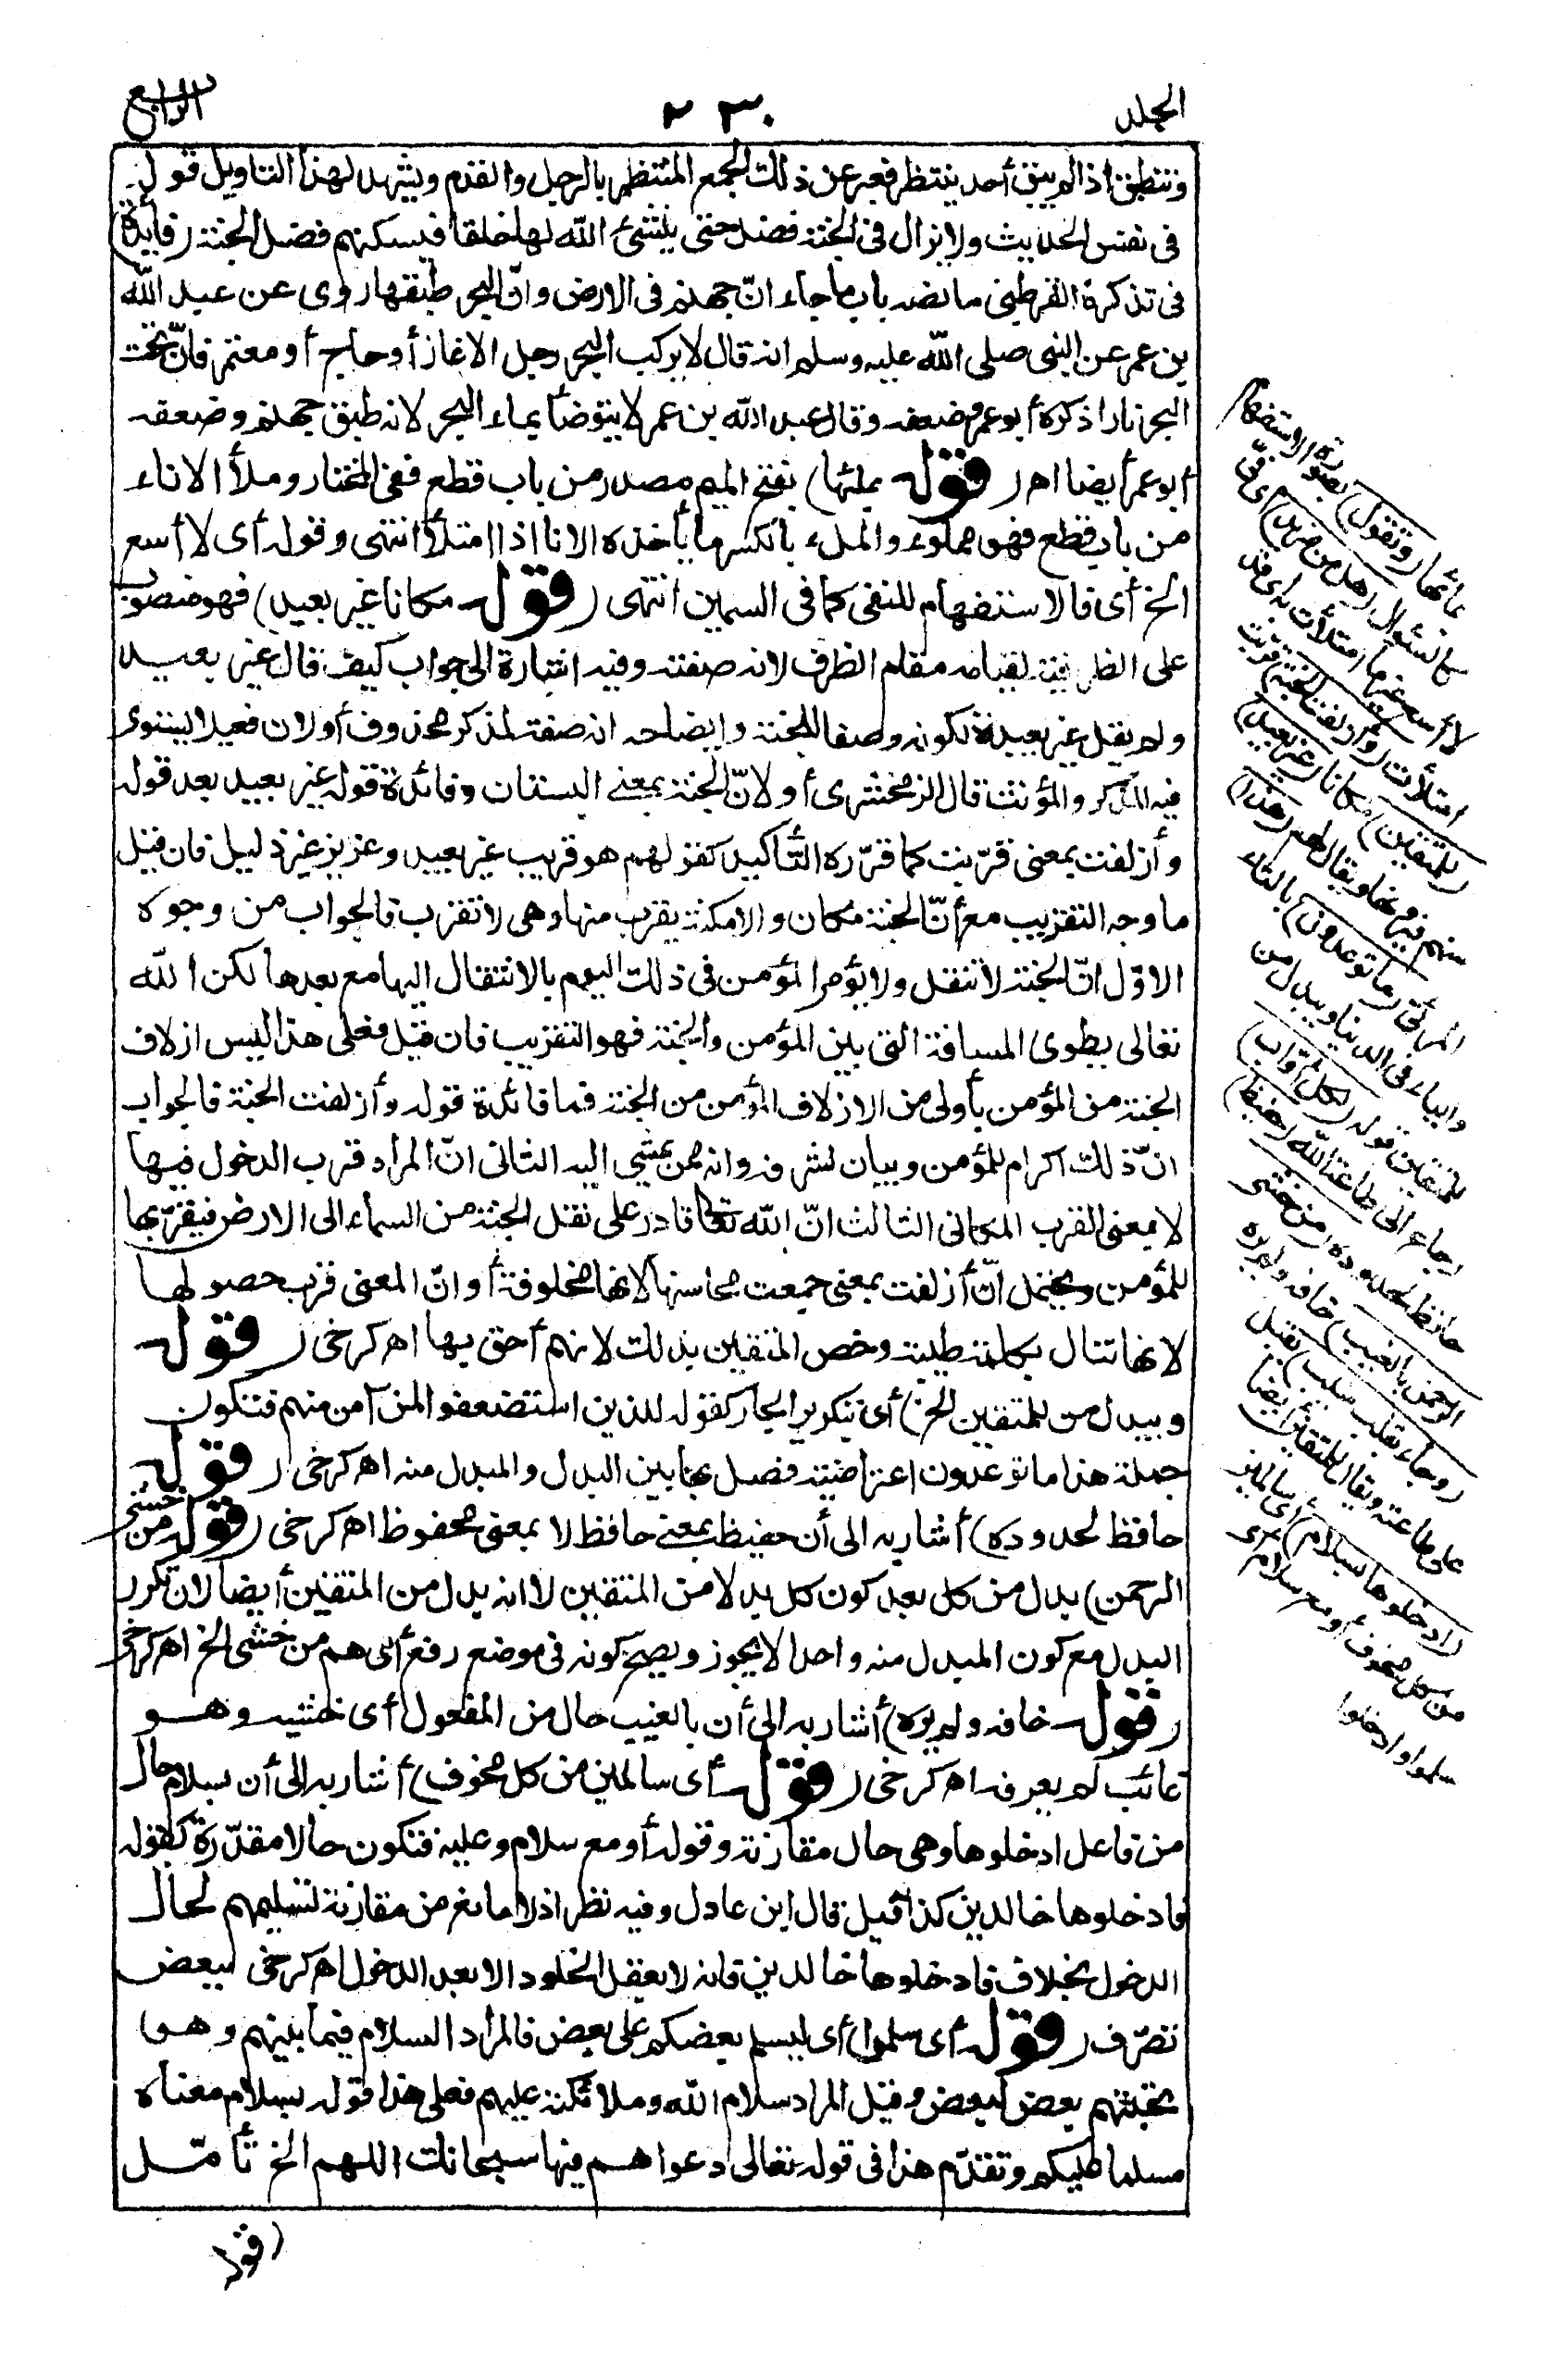 الجلد
٢٣٠
الرابع
وتنطبق اذ لم يبق أحد ينتظر فعبر عن ذلك الجمع المنتظر بالرجل والقدم ويشهد لهذا التاويل قوله
فى نفس الحديث ولا يزال فى الجنة فضل حتى ينشئ الله لها خلقا فيسكنهم فضل الجنة (فائدة)
فى تذكرة القرطبى ما نصه باب ما جاء انّ جهنم فى الارض وانّ البحر طبقها روى عن عبد الله
بن عمر عن النبى صلى الله عليه وسلم انه قال لا يركب البحر رجل الا غاز أو حاج أو معتمر فانّ تحت
البحر نارا ذكره أبو عمر وضعفه وقال عبد الله بن عمر لا يتوضأ بماء البحر لانه طبق جهنم وضعفه
أبو عمر أيضا اهـ (قوله بملئها) بفتح الميم مصدر من باب قطع ففى المختار وملأ الاناء
من باب قطع فهو مملوء والملء بالكسر ما يأخذه الانا اذا امتلأ انتهى وقوله أى لا أسع
الخ أى فالاستفهام للنفى كما فى السمين انتهى (قوله مكانا غير بعيد) فهو منصوب
على الظرفية لقيامه مقام الظرف لانه صفته وفيه اشارة الى جواب كيف قال غير بعيد
ولم يقل غير بعيدة لكونه وصفا للجنة وايضاحه انه صفة لمذكر محذوف أو لان فعيلا يستوى
فيه المذكر والمؤنث قال الزمخشرى أو لانّ الجنة بمعنى البستان وفائدة قوله غير بعيد بعد قوله
وأزلفت بمعنى قرّبت كما قرّره التأكيد كقولهم هو قريب غير بعيد وعزيز غير ذليل فان قيل
ما وجه التقريب مع أنّ الجنة مكان والامكنة يقرب منها وهى لا تقرب فالجواب من وجوه
الاوّل انّ الجنة لا تنقل ولا يؤمر المؤمن فى ذلك اليوم بالانتقال اليها مع بعدها لكن الله
تعالى يطوى المسافة التى بين المؤمن والجنة فهو التقريب فان قيل فعلى هذا ليس ازلاف
الجنة من المؤمن بأولى من الازلاف المؤمن من الجنة فما فائدة قوله وأزلفت الجنة فالجواب
انّ ذلك اكرام للمؤمن وبيان لشرفه وانه ممن يمشى اليه الثانى انّ المراد قرب الدخول فيها
لا بمعنى القرب المكانى الثالث انّ الله تعالى قادر على نقل الجنة من السماء الى الارض فيقرّبها
للمؤمن ويحتمل أنّ أزلفت بمعنى جمعت محاسنها لانها مخلوقة أو انّ المعنى قرب حصولها
لانها تنال بكلمة طيبة وخص المتقين بذلك لانهم أحق بها اهـ كرخى (قوله
ويبدل من للمتقين الخ) أى بتكرير الجار كقوله للذين استضعفوا لمن آمن منهم فتكون
جملة هذا ما توعدون اعتراضية فصل بها بين البدل والمبدل منه اهـ كرخى (قوله
حافظ لحدوده) أشار به الى أن حفيظ بمعنى حافظ لا بمعنى محفوظ اهـ كرخى (قوله من خشى
الرحمن) بدل من كل بعد كون كل بدلا من المتقين لا انه بدل من المتقين أيضا لان تكرر
البدل مع كون المبدل منه واحدا لا يجوز ويصح كونه فى موضع رفع أى هم من خشى الخ اهـ كرخى
(قوله خافه ولم يره) أشار به الى أن بالغيب حال من المفعول أى خشيه وهو
غائب لم يعرفه اهـ كرخى (قوله أى سالمين من كل مخوف) أشار به الى أن بسلام حال
من فاعل ادخلوها وهى حال مقارنة وقوله أو مع سلام وعليه فتكون حالا مقدّرة كقوله
فادخلوها خالدين كذا قيل قال ابن عادل وفيه نظر اذ لا مانع من مقارنة لتسليمهم لحال
الدخول بخلاف فادخلوها خالدين فانه لا يعقل الخلود الا بعد الدخول اهـ كرخى ببعض
تصرّف (قوله أى سلموا) أى ليسلم بعضكم على بعض فالمراد السلام فيما بينهم وهو
تحيتهم بعض لبعض وقيل المراد سلام الله وملائكته عليهم فعلى هذا قوله بسلام معناه
مسلما عليكم وتقدّم هذا فى قوله تعالى دعواهم فيها سبحانك اللهم الخ تأمّل
(قوله
بملئها (وتقول) بصورة الاستفهام
كالسؤال (هل من مزيد) أى فىّ
لا أسع غير ما امتلأت به أى قد
امتلأت (وأزلفت الجنة) قربت
(للمتقين) مكانا (غير بعيد)
منهم فيرونها ويقال لهم (هذا)
المرئى (ما توعدون) بالتاء
والياء فى الدنيا ويبدل من
للمتقين قوله (لكل أوّاب)
رجاع الى طاعة الله (حفيظ)
حافظ لحدوده (من خشى
الرحمن بالغيب) خافه ولم يره
(وجاء بقلب منيب) مقبل
على طاعته ويقال للمتقين أيضا
(ادخلوها بسلام) أى سالمين
من كل مخوف أو مع سلام أى
سلموا وادخلوا